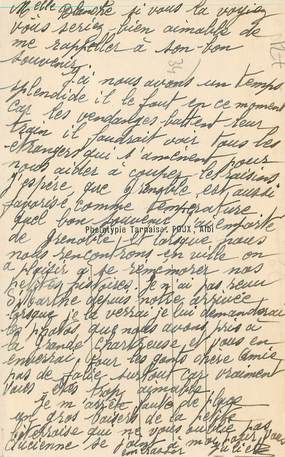 Melle Blanche si vous la voyiez
vous seriez bien aimable de
me rappeller à son bon
souvenir.
Ici nous avons un temps
splendide il le faut en ce moment
car les vendanges battent leur
train il faudrait voir tous les
étrangers qui s'amènent pour
nous aider à couper les raisins
J'espère, que Grenoble est aussi
favorisé comme température
quel bon souvenir
Phototypie Tarnaise. POUX, Albi
de Grenoble et lorsque nous
nous rencontrons en ville on
a plaisir à se remémorer nos
petites histoires. Je n'ai pas revu
depuis notre arrivée
lorsque je la verrai je lui demanderai
les photos que nous avons pris à
la Grande Chartreuse et vous en
enverrai, pour les gants chère amie
pas de folie surtout car vraiment
vous êtes trop aimable.
Je m'arrête faute de place
gros baisers de la petite
qui ne vous oublie pas
Lucienne se joint à moi pour vous
embrasser Juliette
34